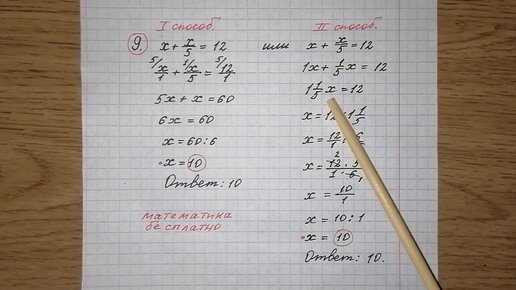 I способ.
9. x + x/5 = 12
5/ x/1 + 1/ x/5 = 5/ 12/1
5x + x = 60
6x = 60
x = 60 : 6
x = 10
Ответ: 10
математика
бесплатно
или
II способ.
x + x/5 = 12
1x + 1/5 x = 12
1 1/5 x = 12
x = 12 : 1 1/5
x = 12/1 :
x = 12 · 5 / 1 · 6
x = 10/1
x = 10 : 1
x = 10
Ответ: 10.